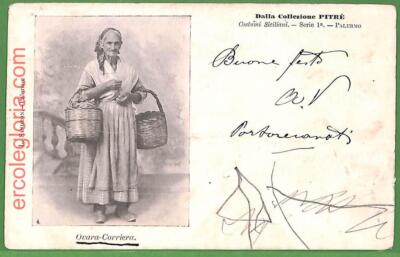 Dalla Collezione PITRÈ
Costumi Siciliani. — Serie 1ª. — PALERMO
Buone feste
a. V
Portorecanati
4.
Ovara-Corriera.
ercolegloria.com